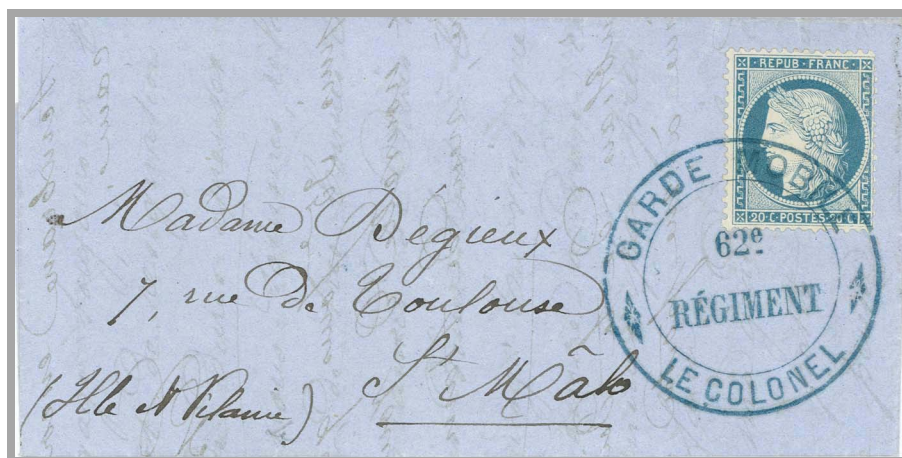 REPUB·FRANC
20·C·POSTES·20·C
GARDE MOBILE
62e
RÉGIMENT
LE COLONEL
Madame Dégieux
7, rue De Toulouse
St Mâlo
(Ille et Vilaine)